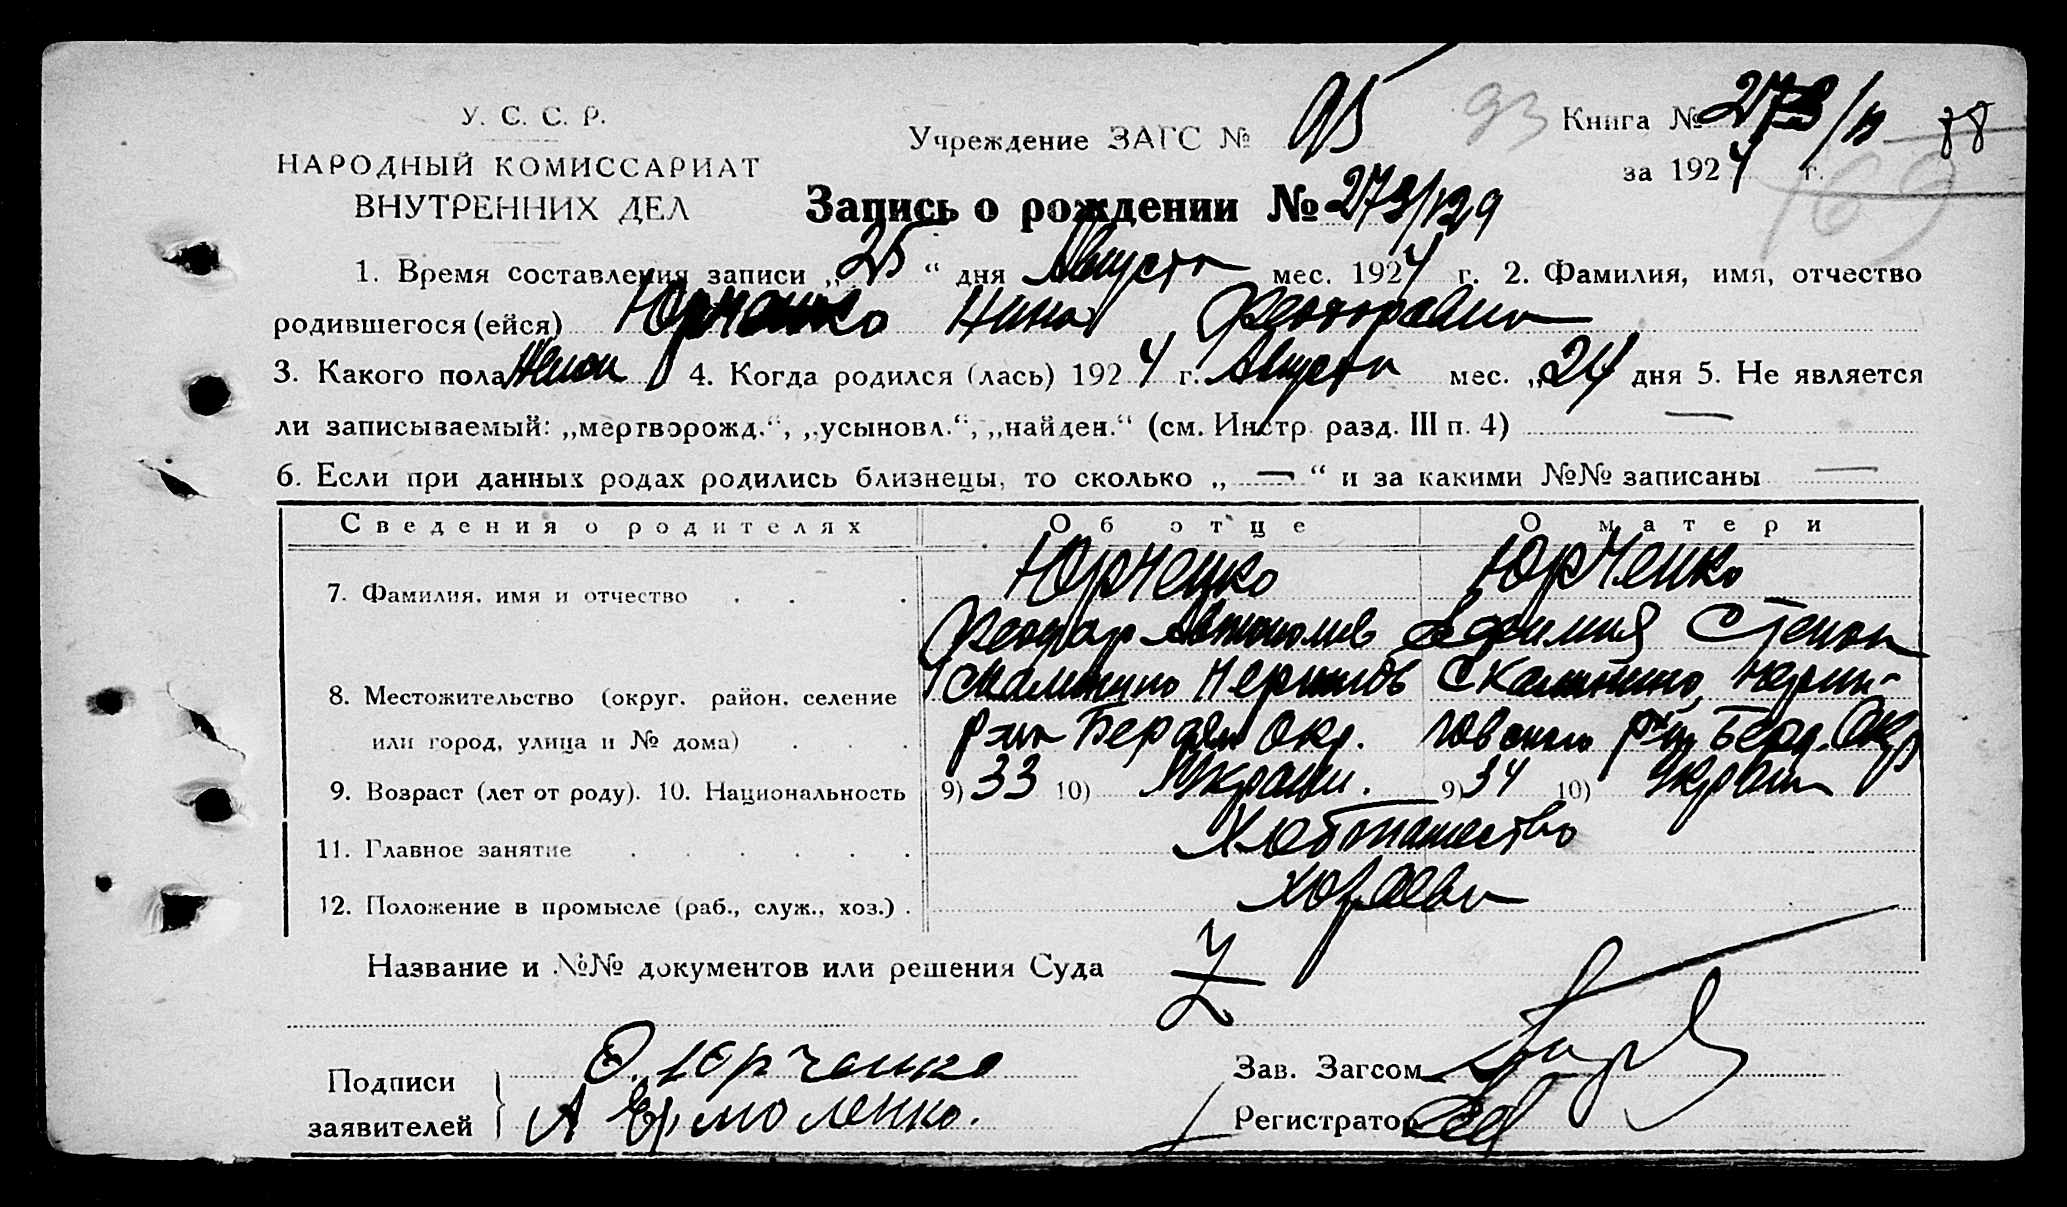 У. С. С. Р.
НАРОДНЫЙ КОМИССАРИАТ
ВНУТРЕННИХ ДЕЛ
Учреждение ЗАГС № 95 93
Книга № 273/ 88
за 1924 г. 169
Запись о рождении № 273/129
1. Время составления записи „25“ дня Августа мес. 1924 г. 2. Фамилия, имя, отчество
родившегося (ейся) Юрченко Нина Феодоровна
3. Какого пола Женск 4. Когда родился (лась) 1924 г. Августа мес. „24 дня 5. Не является
ли записываемый: „мертворожд.“, „усыновл.“, „найден.“ (см. Инстр. разд. III п. 4) —
6. Если при данных родах родились близнецы, то сколько „ — “ и за какими №№ записаны —
Сведения о родителях Об отце О матери
7. Фамилия, имя и отчество Юрченко Юрченко
Феодор Евфимия Степан
8. Местожительство (округ, район, селение Черниг Черни-
или город, улица и № дома) рэна Бердян Окр. говского р-на Берд. Окр
9. Возраст (лет от роду). 10. Национальность 9) 33 10) Украин. 9) 34 10) Украин
11. Главное занятие Хлебопашество
12. Положение в промысле (раб., служ., хоз.)
Название и №№ документов или решения Суда
Подписи заявителей
Ф. Юрченко
А Ермоленко.
Зав. Загсом
Регистратор